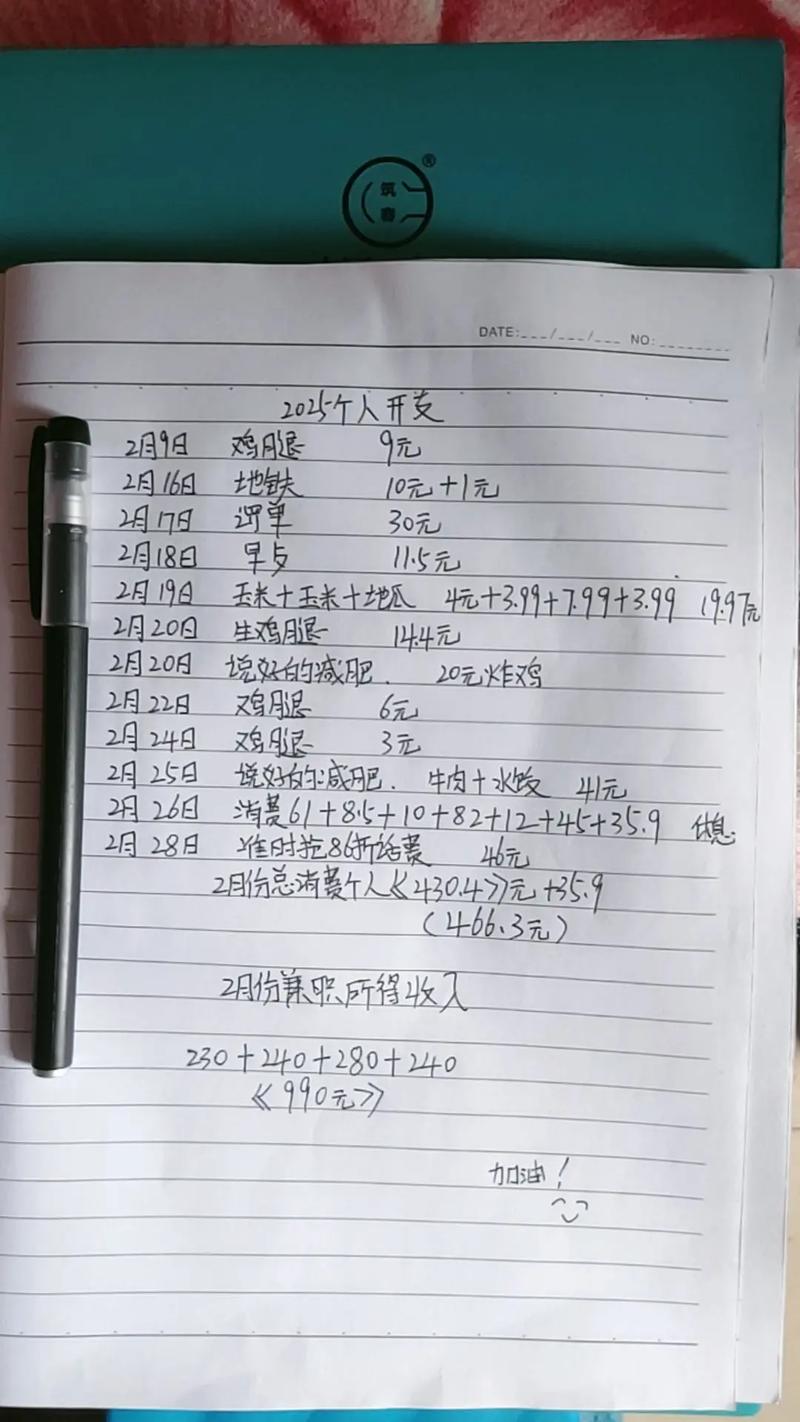 筑春®
DATE:___/___/___ NO:________
2025个人开支
2月9日 鸡腿 9元
2月16日 地铁 10元+1元
2月17日 罚单 30元
2月18日 早与 11.5元
2月19日 玉米+玉米+地瓜 4元+3.99+7.99+3.99 19.97元
2月20日 生鸡腿 14.4元
2月20日 说好的减肥. 20元炸鸡
2月22日 鸡腿 6元
2月24日 鸡腿 3元
2月25日 说好的减肥. 牛肉+水饺 41元
2月26日 消费61+8.5+10+82+12+45+35.9 休息
2月28日 准时抢86折话费 46元
2月份总消费个人《430.4》元+35.9
(466.3元)
2月份兼职所得收入
230+240+280+240
《990元》
加油!